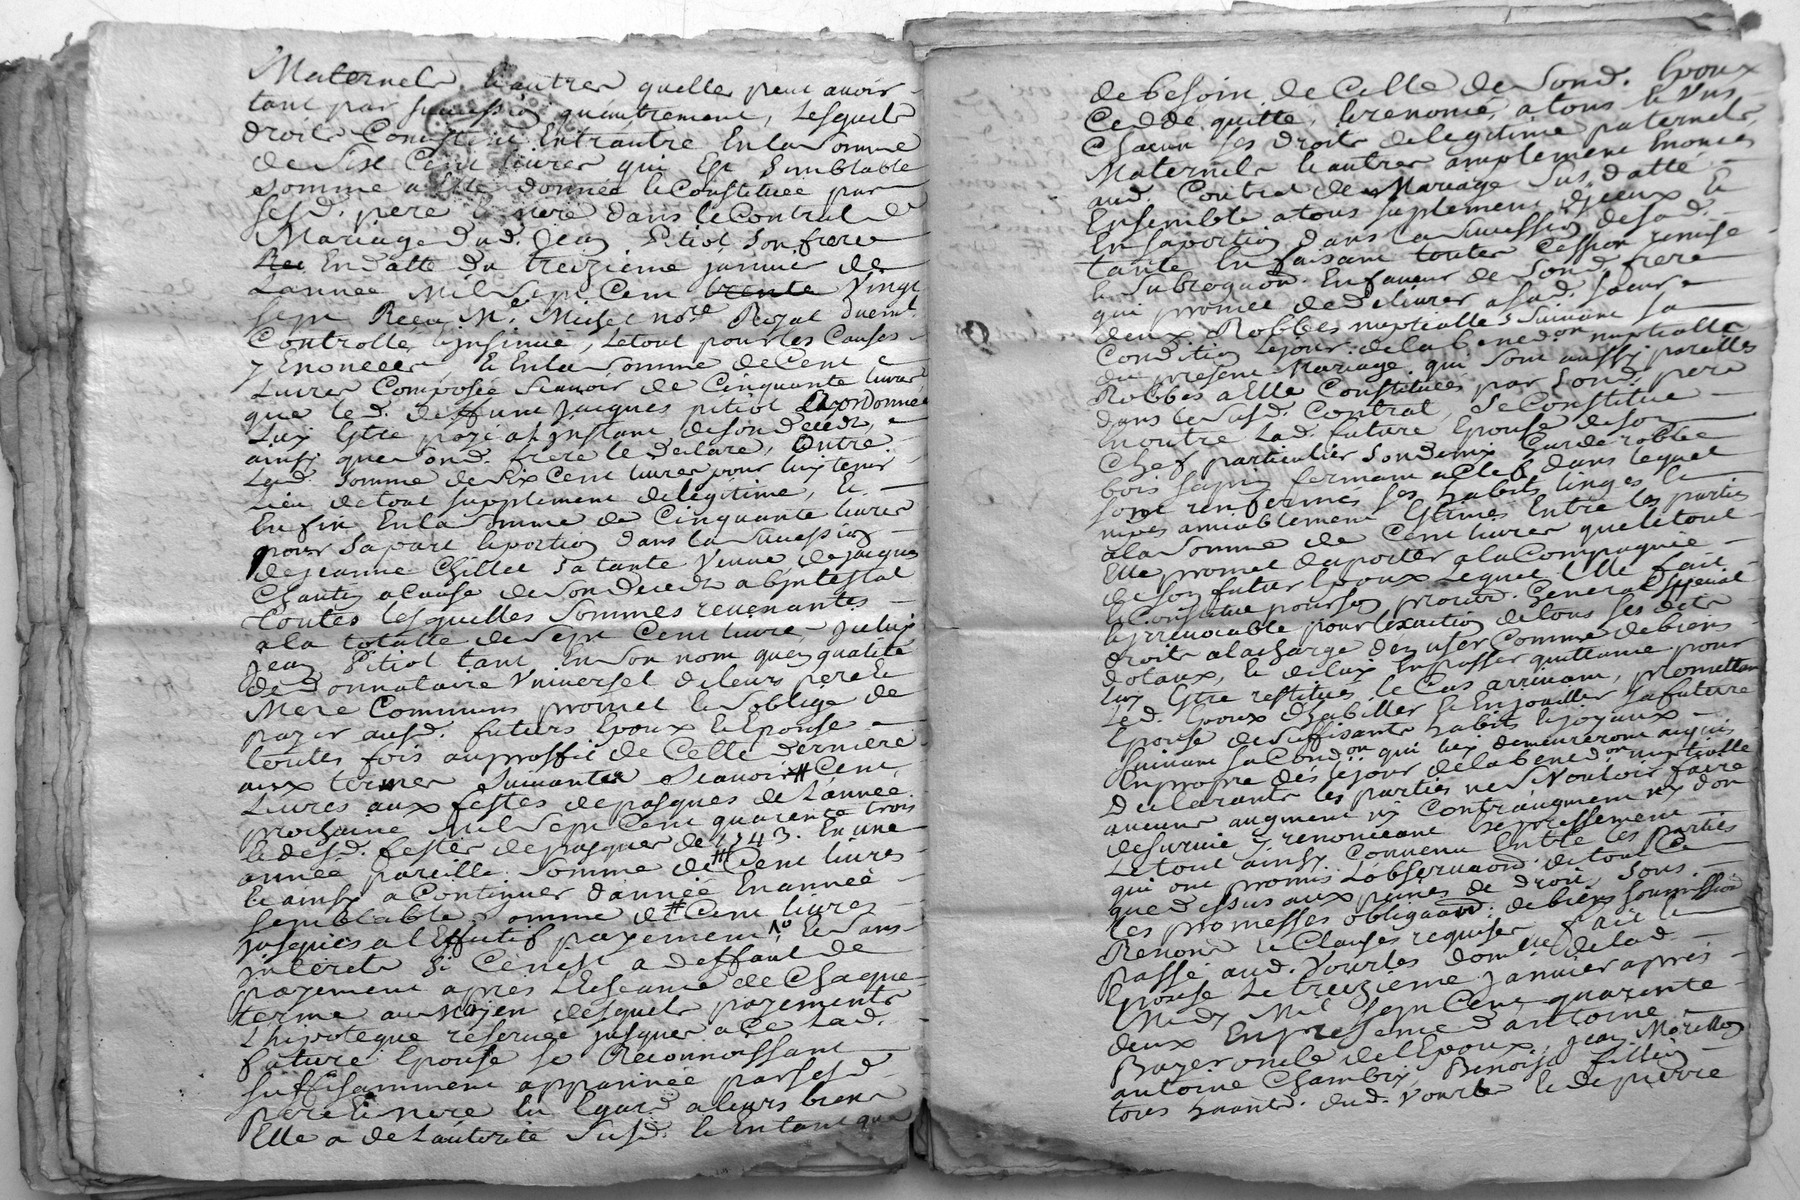 Maternels & autres quelle peut avoir
tant par succession quautrement, Lesquels
droits Consistent Entrautre En la Somme
de Six Cent livres qui Est Semblable
Somme a Elle donnée & Constituée par
sesd. pere & mere dans le Contrat de
Mariage dud. Jean Pitiot Son frere
En datte du treizieme janvier de
L'année Mil Sept Cent trente Vingt
Sept Receu Me. Michel nore. Royal duemt.
Controllé & insinué, Le tout pour les Causes
y Enoncées, & En la Somme de Cent
Livres Composée Scavoir de Cinquante livres
que led. deffunt Jacques pitiot a ordonnée
Luy Estre payé a l'instant de son decedz,
ainsy que Sond. frere le declare, Outre
Lad. Somme de Six Cent livres pour luy tenir
Lieu de tout supplement de legitime, &
Enfin En la Somme de Cinquante livres
pour Sa part & portion dans la Succession
de jeanne Chillet Sa tante Veuve de jacques
a cause de Son decedz ab intestat
Toutes lesquelles Sommes revenantes
a la totalle de Sept Cent livres, Iceluy
Jean Pitiot tant En Son nom quen qualité
de Donnataire Universel de leurs pere &
Mere Communs promet & Soblige de
payer ausd. futurs Epoux & Epouse
toutes fois au proffit de Cette derniere
aux termes Suivantes Scavoir # Cent
Livres aux festes de pasques de L'année
prochaine Mil Sept Cent quarante trois
& desd. festes de pasques de 1743. En une
année pareille Somme de # Cent livres
& ainsy a Continuer d'année En année
Semblable Somme de # Cent livres
jusques a l'Effectif payement, & Sans
interets Si Ce n'est a deffaut de
payement apres L'Echeance de Chaque
terme au moyen desquels payements
L'hipoteque reservée jusques a Ce Lad.
future Epouse Se Reconnoissant
suffisamment apparinée par sesd.
pere & mere Eu Egard a leurs biens
Elle a de L'autorité Susd. & En tant que
de besoin de Celle de Sond. Epoux
Cedde, quitte, & renonce, a tous & Uns
Chacun ses droits de legitime paternels,
Maternels & autres amplement Enoncés
aud. Contrat de Mariage Sus datté
Ensemble a tous suplement dyceux &
En Sa portion dans la Succession de Sad.
tante En faisant toutes Cession remise
& Subrogaon. En faveur de Sond. frere
qui promet de delivrer a Sad. Soeur
deux Robbes nuptialles Suivant Sa
Condition Le jour de la bened.on nuptialle
du present Mariage, qui Sont aussy pareilles
Robbes a Elle Constituées par Sond. pere
dans le Susd. Contrat, Se Constitue
En outre Lad. future Epouse de son
Chef particulier Son deux Garderobbe
bois Sapin fermant a Clef dans lequel
Sont renfermés Ses habits linges &
nipes amiablement Estimés Entre les parties
a la Somme de Cent livres que le tout
Elle promet d'aporter a la Compagnie
de Son futur Epoux Lequel Elle fait
& Constitue pour Son procur. General Special
& Irrevocable pour lexaction de tous ses dits
droits a la charge d'en user Comme de biens
dotaux, & de luy En passer quittance pour
Luy Estre restitués le Cas arrivant, promettant
Led. Epoux d'habiller & Enjoailler Sa future
Epouse de Suffisants habits & joyaux
Suivant Sa Cond.on qui luy demeureront acquis
En propre dès le jour de la bened.on nuptialle
Declarants les parties ne Vouloir faire
aucuns augment ny Contraugment ny don
de survie y renonceant Expressement
Le tout ainsy Convenu Entre les Parties
qui ont promis L'observaaon. de tout Ce
que dessus aux peines de droit, Sous
Les promesses obligaaon. de biens Soumission
Renonc. & Clauses requises, fait &
passé aud. Vourles domlle. de lad.
Epouse Le treizieme Janvier après
Midy Mil Sept Cent quarente
deux En presence d'antoine
Bayer oncle de l'Epoux, Jean Morillon
antoine Chambry, Benoist fillion
tous habitd. dud. Vourles & de pierre